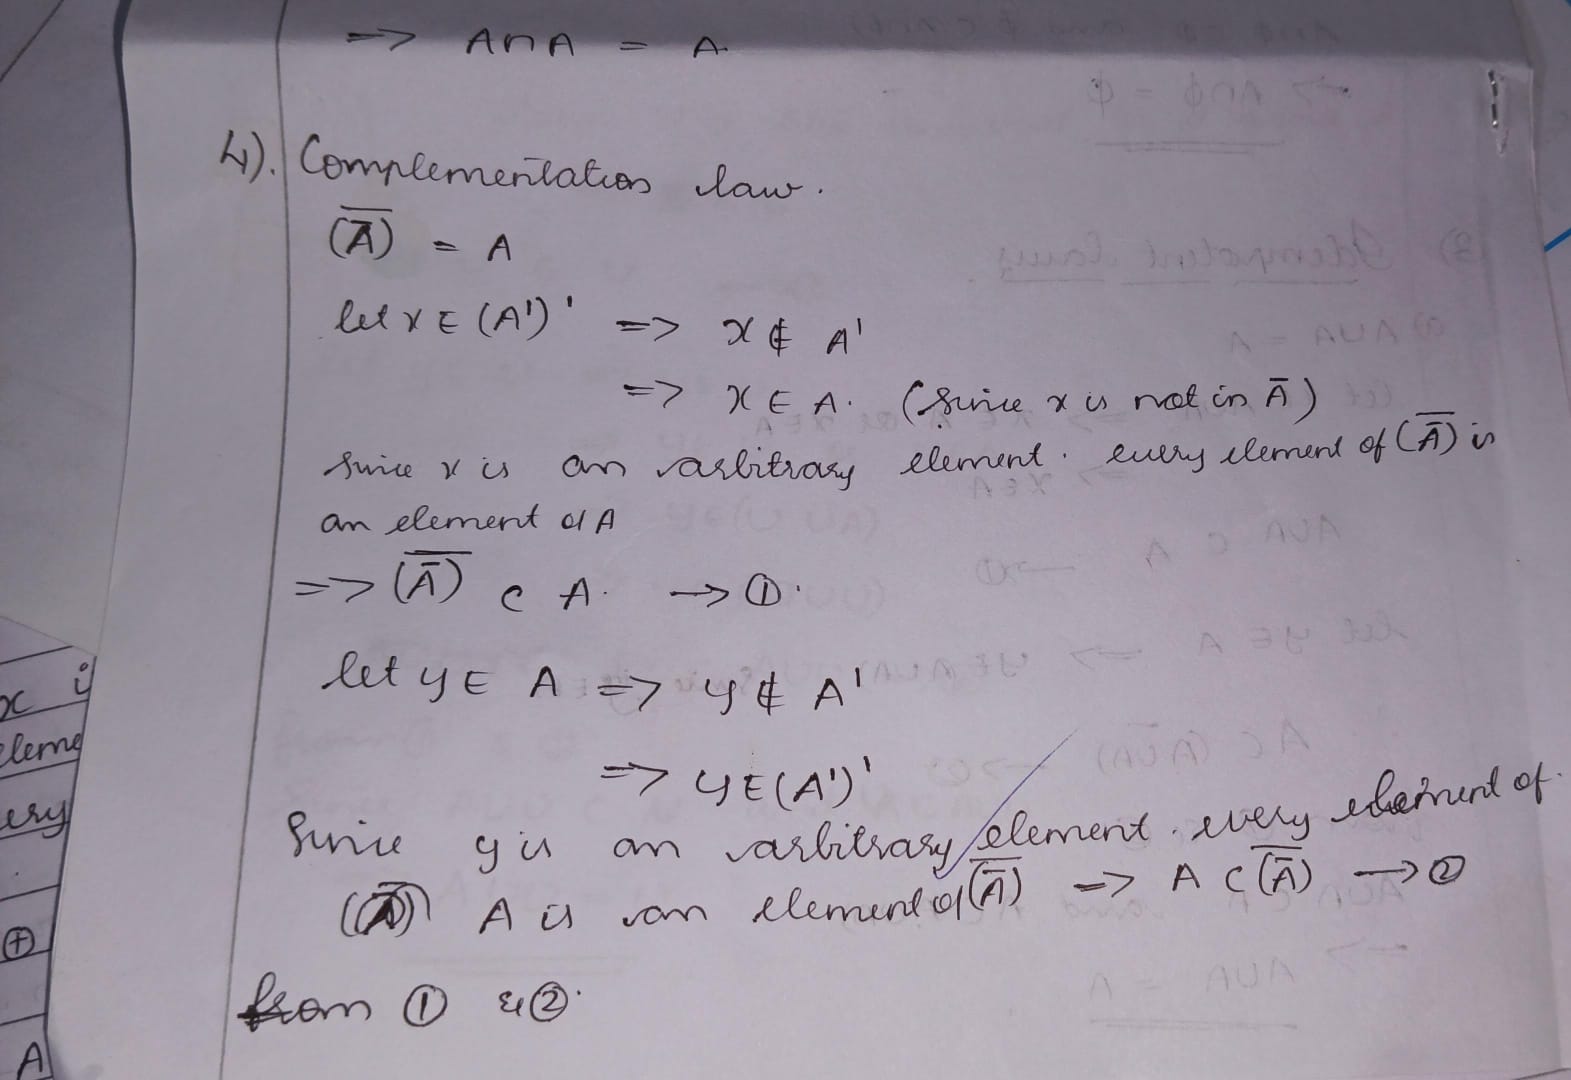 => A∩A = A.
4). Complementation law.
(A̅)̅ = A
let x ∈ (A')' => x ∉ A'
=> x ∈ A. (since x is not in A̅)
since x is an arbitrary element. every element of (A̅)̅ is
an element of A
=> (A̅)̅ ⊂ A. → ①.
let y ∈ A => y ∉ A'
=> y ∈ (A')'
Since y is an arbitrary element. every element of.
A is an element of (A̅)̅ => A ⊂ (A̅)̅ → ②
from ① & ②.
x i
eleme
ery
⊕
A